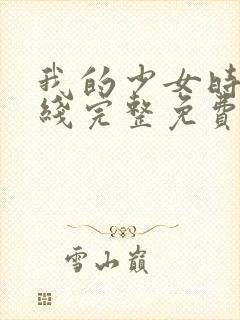 我的少女时
綫完整免費
雪山巔